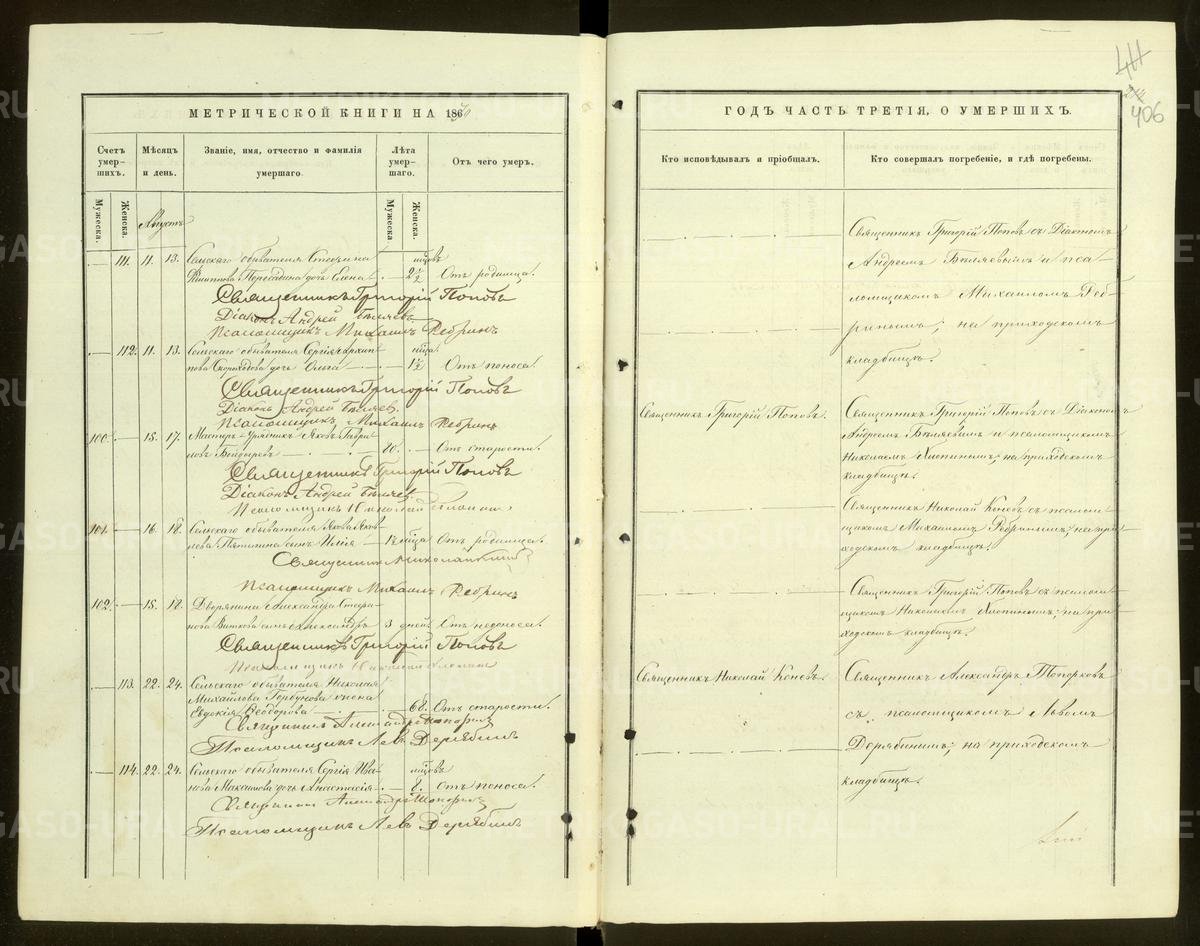 МЕТРИЧЕСКОЙ КНИГИ НА 1870
Счетъ умер-шихъ.
Мѣсяцъ и день.
Званіе, имя, отчество и фамилія умершаго.
Лѣта умер-шаго.
Отъ чего умеръ.
Мужеска.
Женска.
Мужеска
Женска.
Августъ
мцовъ
111. 11. 13. Сельскаго обывателя Стефана
Филиппова дочь Елена 2½ Отъ родимца.
Священникъ Григорій Поповъ
Діаконъ Андрей Бѣляевъ
Псаломщикъ Михаилъ Ребринъ
112. 11. 13. Сельскаго обывателя Сергія Архип-
пова Скороходова дочь Ольга 1½ Отъ поноса.
Священникъ Григорій Поповъ
Діаконъ Андрей Бѣляевъ.
Псаломщикъ Михаилъ Ребринъ
100. 15. 17. Мастеръ-Урядникъ Яковъ Гаври-
ловъ 80. Отъ старости.
Священникъ Григорій Поповъ
Діаконъ Андрей Бѣляевъ.
Псаломщикъ Николай
101. 16. 18. Сельскаго обывателя Якова Яков-
лева сынъ Илія мцa Отъ родимца.
Священникъ Николай
Псаломщикъ Михаилъ Ребринъ
102. 15. 18. Дворянина Александра Стефа-
нова сынъ Александръ 3 дней Отъ
Священникъ Григорій Поповъ
Псаломщикъ Николай
113. 22. 24. Сельскаго обывателя Николая
Михайлова Горбунова жена
Евдокія Ѳеодорова 68. Отъ старости.
Священникъ Александръ Топорковъ
Псаломщикъ Левъ Дерябинъ
мцовъ
114. 22. 24. Сельскаго обывателя Сергія Ива-
нова дочь Анастасія 8. Отъ поноса.
Священникъ Александръ Топорковъ
Псаломщикъ Левъ Дерябинъ
406
ГОДЪ ЧАСТЬ ТРЕТІЯ, О УМЕРШИХЪ.
Кто исповѣдывалъ и пріобщалъ.
Кто совершалъ погребеніе, и гдѣ погребены.
Священникъ Григорій Поповъ съ Діакономъ
Андреемъ Бѣляевымъ и пса-
ломщикомъ Михаиломъ Реб-
ринымъ; на приходскомъ
кладбищѣ.
Священникъ Григорій Поповъ.
Священникъ Григорій Поповъ съ Діакономъ
Андреемъ Бѣляевымъ и псаломщикомъ
Николаемъ Хлопинымъ; на приходскомъ
кладбищѣ.
Священникъ Николай Коневъ съ псалом-
щикомъ Михаиломъ Ребринымъ; на при-
ходскомъ кладбищѣ.
Священникъ Григорій Поповъ съ псалом-
щикомъ Николаемъ Хлопинымъ; на при-
ходскомъ кладбищѣ.
Священникъ Николай Коневъ.
Священникъ Александръ Топорковъ
съ псаломщикомъ Львомъ
Дерябинымъ; на приходскомъ
кладбищѣ.